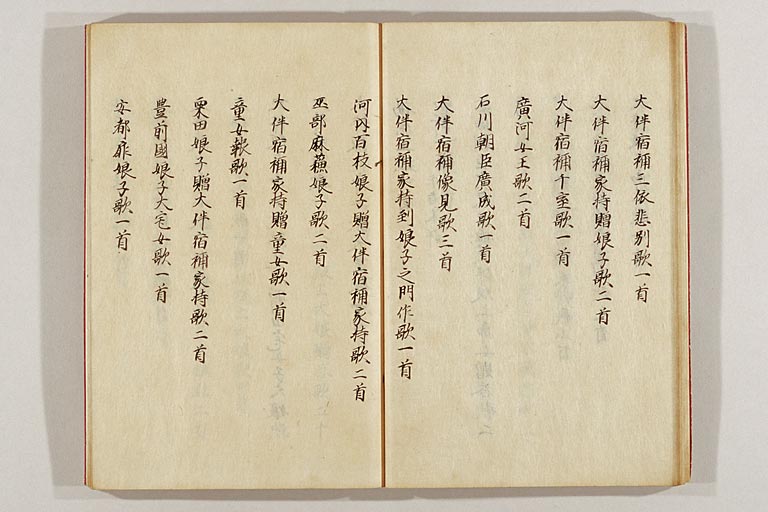 大伴宿祢三依悲別歌一首
大伴宿祢家持贈娘子歌二首
大伴宿祢千室歌一首
廣河女王歌二首
石川朝臣廣成歌一首
大伴宿祢像見歌三首
大伴宿祢家持到娘子之門作歌一首
河内百枝娘子贈大伴宿祢家持歌二首
巫部麻蘓娘子歌二首
大伴宿祢家持贈童女歌一首
童女報歌一首
粟田娘子贈大伴宿祢家持歌二首
豊前國娘子大宅女歌一首
安都扉娘子歌一首